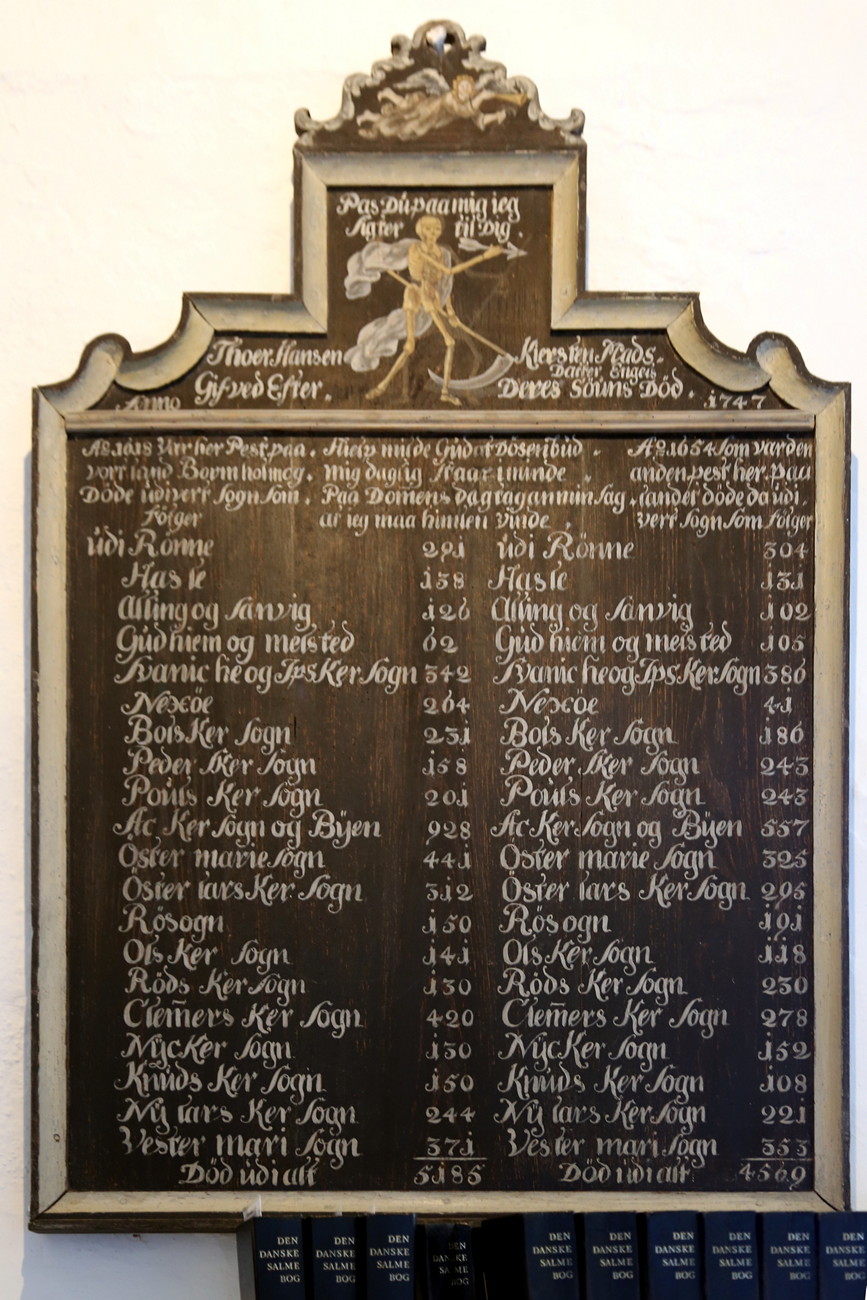 Pas Du paa mig ieg
sigter til Dig.
Thoer Hansen
Gifved Efter.
Anno
Kiersten Mads.
Datter Engeis
Deres Söuns Död.
1747
Ao. 1618 Vrr her Pest paa.
vort land Bornholm og.
Döde udi vert sogn som.
fölger
Hielp mi de Gud at Dösen bud.
mig daglig staar i minde.
Paa Domens dag tag an min sag.
at ieg maa himlen vinde.
Ao. 1654 som var den
anden pest her paa
landet döde da udi.
vert sogn som fölger
udi Rönne 291
Hasle 158
Alling og sanvig 126
Gudhiem og melsted 62
Svanic he og Ips Ker sogn 342
Nexöe 264
Bols Ker sogn 231
Peder sker sogn 158
Pouls Ker sogn 201
Ac Ker sogn og Bÿen 928
Öster marie sogn 441
Öster lars Ker sogn 312
Rösogn 150
Ols Ker sogn 141
Röds Ker sogn 130
Clem̄ers Ker sogn 420
Nyc Ker sogn 130
Knuds Ker sogn 150
Ny lars Ker sogn 244
Vester mari sogn 371
Död udi alt 5185
udi Rönne 304
Hasle 131
Alling og sanvig 102
Gudhiem og melsted 105
Svanic he og Ips Ker sogn 386
Nexöe 41
Bols Ker sogn 186
Peder sker sogn 243
Pouls Ker sogn 243
Ac Ker sogn og Bÿen 557
Öster marie sogn 325
Öster lars Ker sogn 295
Rösogn 191
Ols Ker sogn 118
Röds Ker sogn 230
Clem̄ers Ker sogn 278
Nyc Ker sogn 152
Knuds Ker sogn 108
Ny lars Ker sogn 221
Vester mari sogn 353
Död udi alt 4569
DEN
DANSKE
SALME
BOG
DEN
DANSKE
SALME
BOG
DEN
DANSKE
SALME
BOG
DEN
DANSKE
SALME
BOG
DEN
DANSKE
SALME
BOG
DEN
DANSKE
SALME
BOG
DEN
DANSKE
SALME
BOG
DEN
DANSKE
SALME
BOG
DEN
DANSKE
SALME
BOG
DEN
DANSKE
SALME
BOG